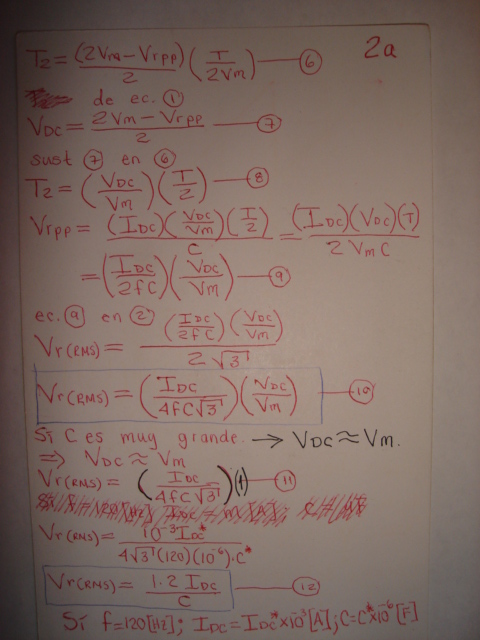 2a
T2 = (2Vm - Vrpp)/2 (T/2Vm) — (6)
de ec. (1)
VDC = (2Vm - Vrpp)/2 — (7)
sust (7) en (6)
T2 = (VDC/Vm) (T/2) — (8)
Vrpp = (IDC)(VDC/Vm)(T/2)/C = (IDC)(VDC)(T)/2VmC
= (IDC/2fC)(VDC/Vm) — (9)
ec. (9) en (2)
Vr(RMS) = (IDC/2fC)(VDC/Vm)/2√3
Vr(RMS) = (IDC/4fC√3)(VDC/Vm) — (10)
Si C es muy grande. → VDC ≈ Vm.
⇒ VDC ≈ Vm
Vr(RMS) = (IDC/4fC√3)(1) — (11)
Vr(RMS) = 10^-3 IDC*/4√3(120)(10^-6)·C*
Vr(RMS) = 1.2 IDC/C — (12)
Si f=120[Hz]; IDC=IDC*x10^-3[A]; C=C*x10^-6[F]